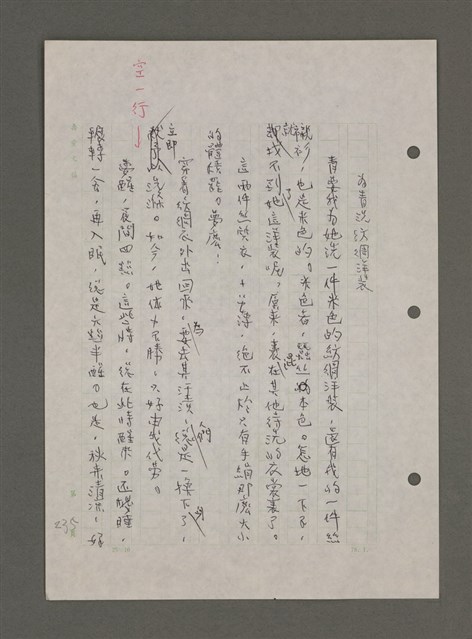 為青洗紡綢洋裝
青要我為她洗一件米色的紡綢洋裝，還有我的一件絲
襯衫，也是米色的。米色者，蠶絲的本色。怎地一下子，
就找不到她這洋裝呢？原來，裹在其他待洗的衣裳裏了。
這兩件絲質衣，十分薄，絕不止於只有手絹那麼大小
的體積罷。夢麼！
穿着紡綢衣外出回來，為要去其汗漬，總是一換下了，
立即洗滌。如今，她體力不勝，只好由我代勞。
夢醒，夜間四點。這些時，總在此時醒來。還想睡，
輾轉一会，再入眠，總是半醒。也是，秋來清涼，好
空一行
235